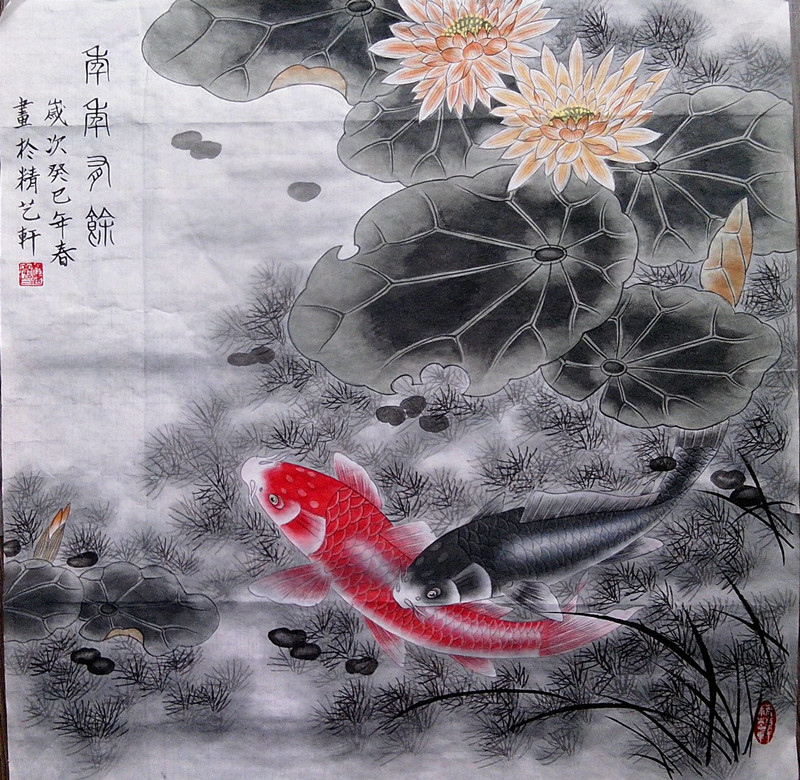 年年有餘
歲次癸巳年春
畫於精艺軒